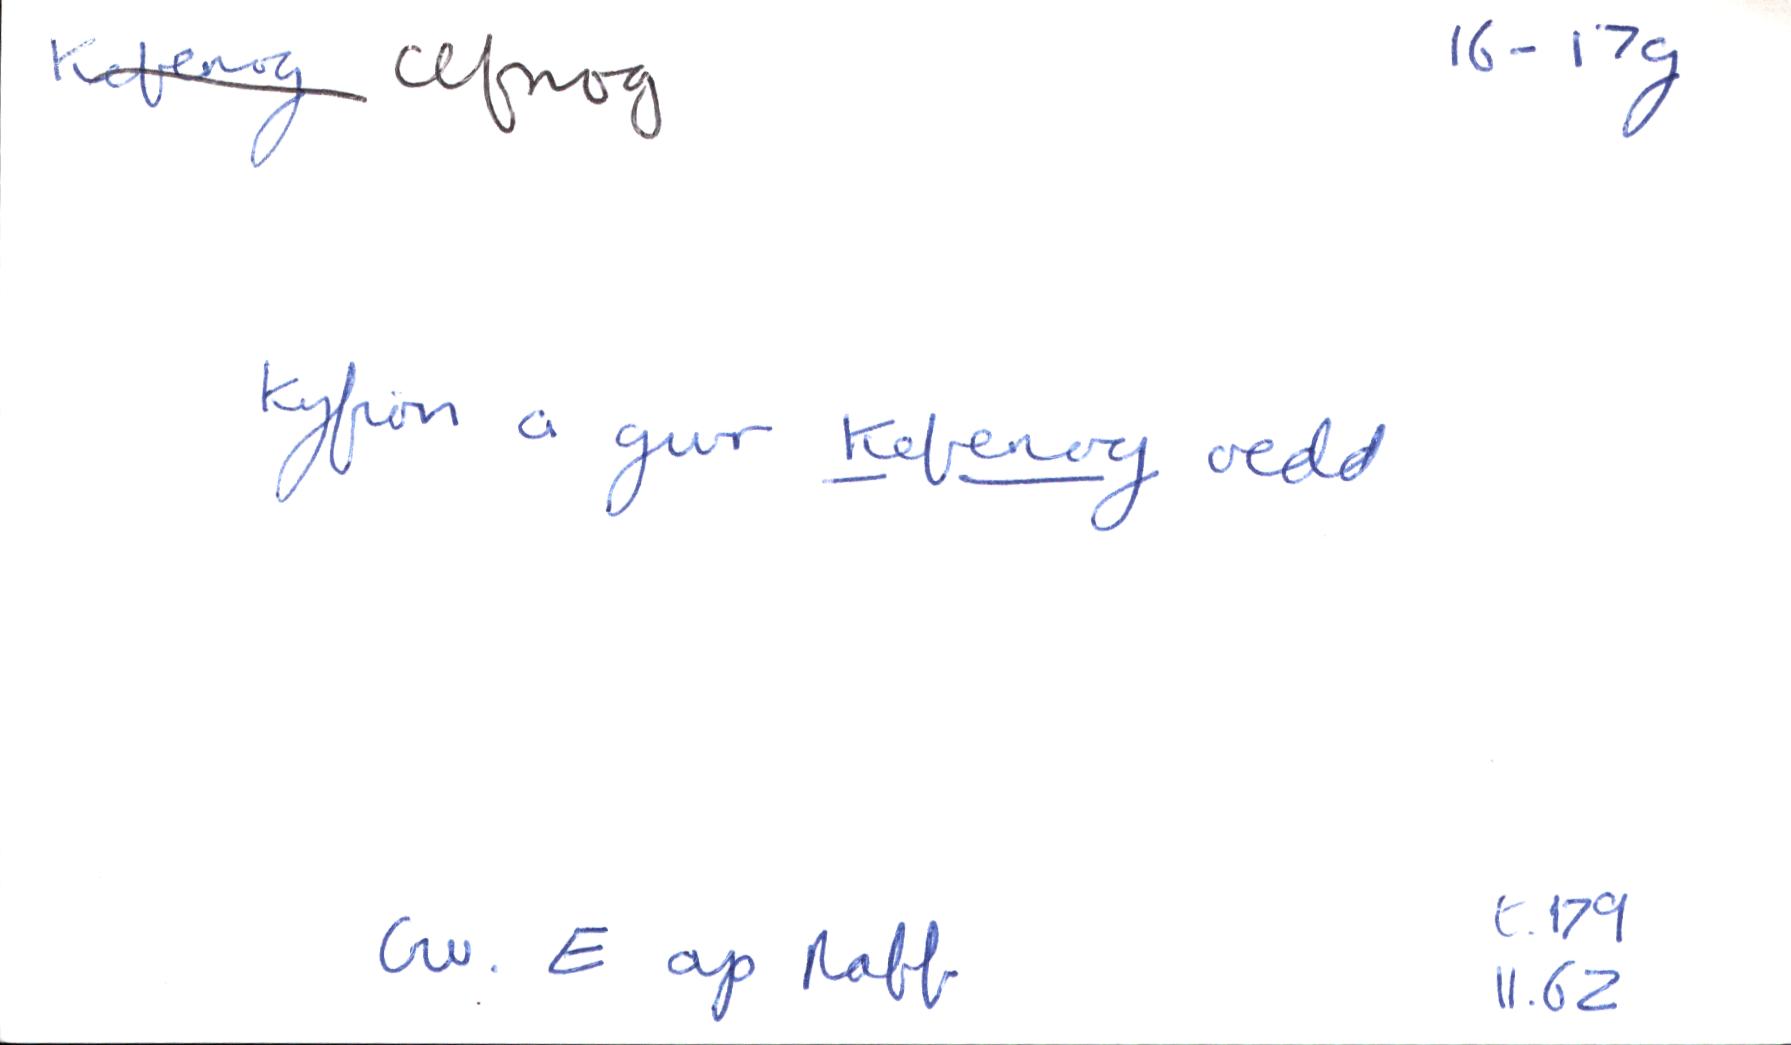 Kefenog cefnog 16-17g
Kyfion a gwr Kefenog oedd
Gw. E ap Raff t.179
11.62